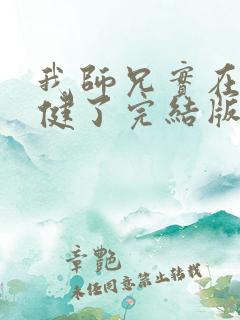 我師兄實在
健了完結版
章艷
未經同意禁止轉載